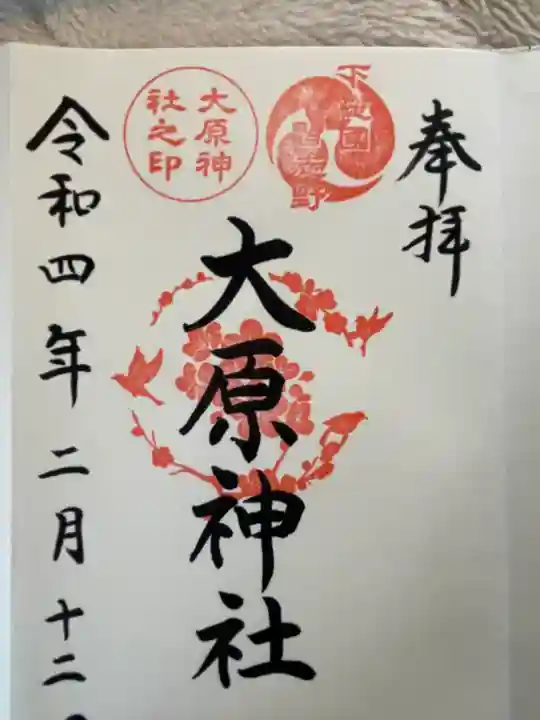 奉拝
下総國
習志野
大原神
社之印
大原神社
令和四年二月十二